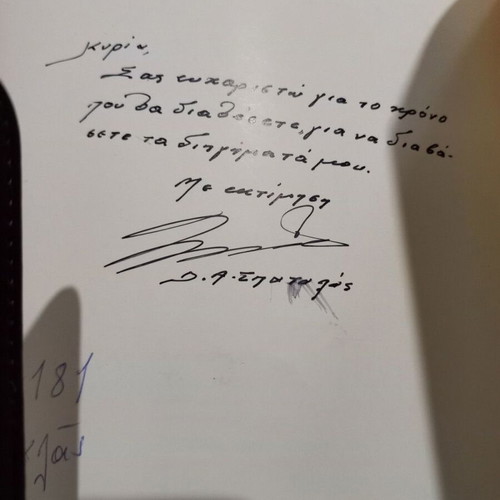 Κυρία,
Σας ευχαριστώ για το χρόνο
που θα διαθέσετε, για να διαβά-
σετε τα διηγήματά μου.
Με εκτίμηση
Δ. Α. Σπαταλάς
181
λᾶς